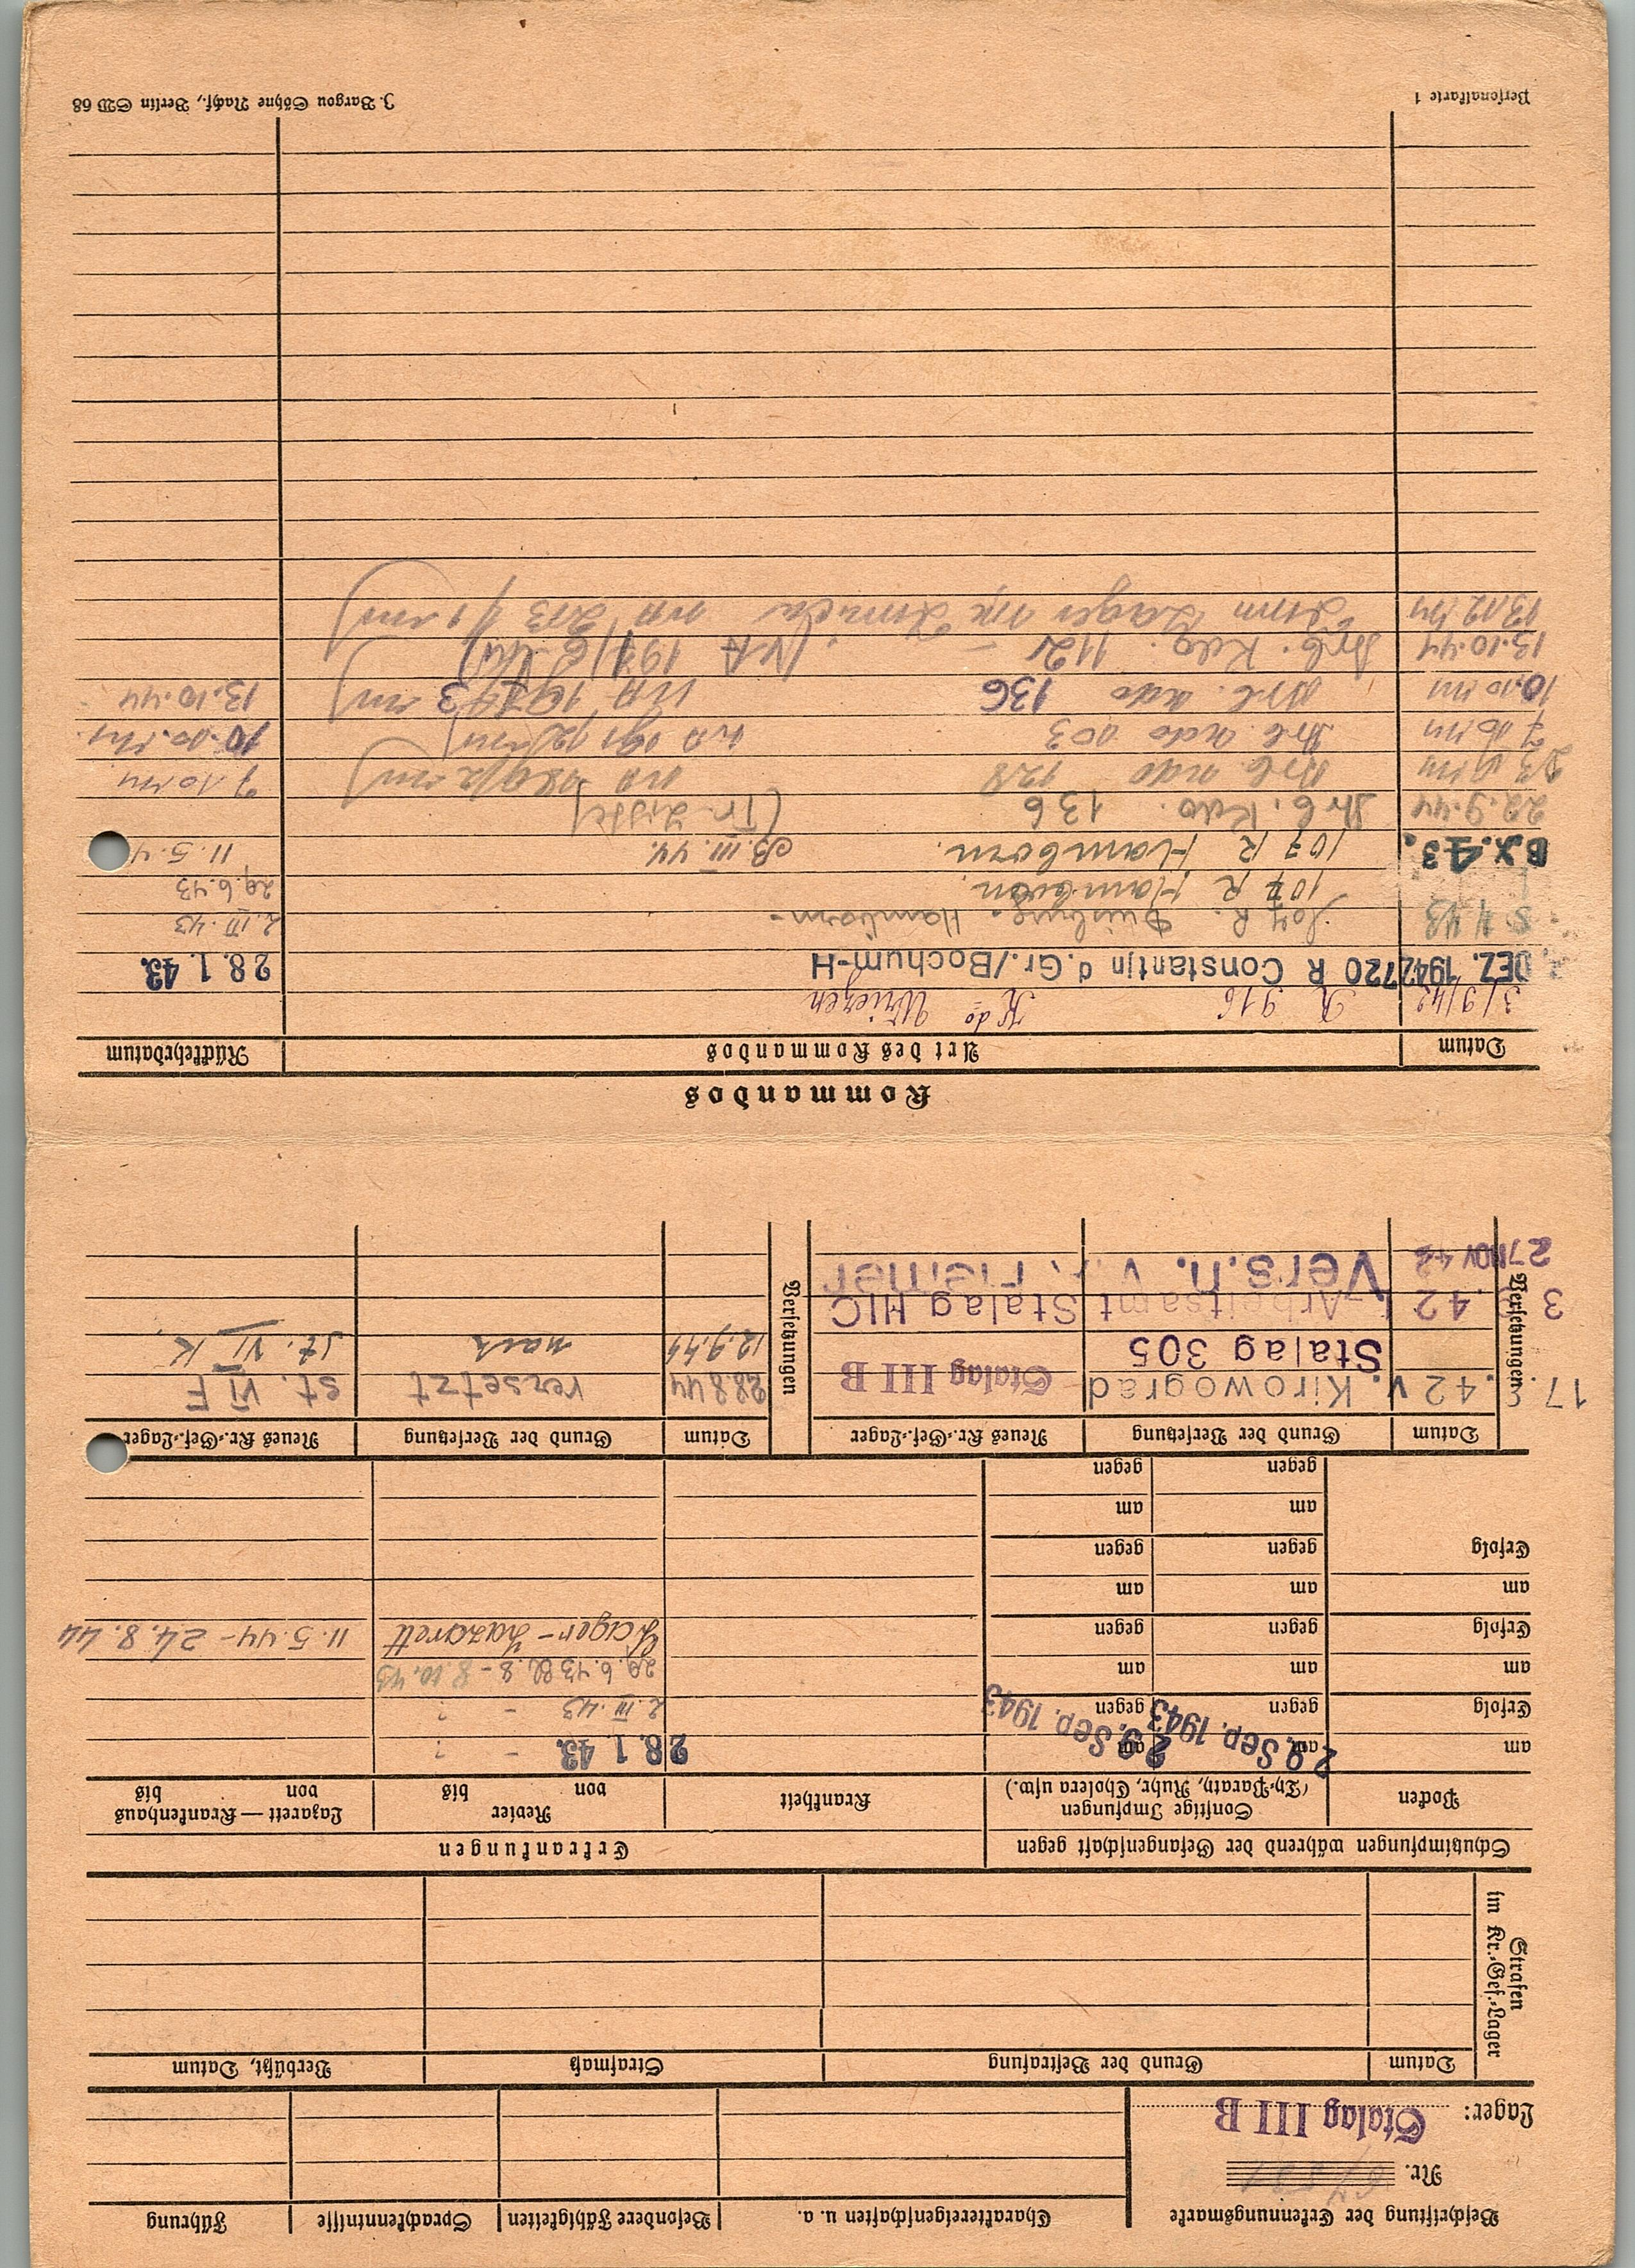 Beschriftung der Erkennungsmarke
Nr.
Lager: Stalag III B
Charaktereigenschaften u. a.
Besondere Fähigkeiten
Sprachkenntnisse
Führung
Strafen
im Kr.-Gef.-Lager
Datum
Grund der Bestrafung
Strafmaß
Verbüßt, Datum
Schutzimpfungen während der Gefangenschaft gegen
Erkrankungen
Pocken
Sonstige Impfungen
(Ty.-Paraty, Ruhr, Cholera usw.)
Krankheit
Revier
von bis
Lazarett — Krankenhaus
von bis
am
am 29. Sep. 1943
am 29. Sep. 1943
28. 1. 43. - ?
Erfolg
gegen
gegen
2. III. 43 - ?
am
am
am
29. 6. 43 - 8. 10. 43
Erfolg
gegen
gegen
Lager-Lazarett
11. 5. 44 - 24. 8. 44
am
am
am
Erfolg
gegen
gegen
am
am
gegen
gegen
Versetzungen
Datum
Grund der Versetzung
Neues Kr.-Gef.-Lager
Versetzungen
Datum
Grund der Versetzung
Neues Kr.-Gef.-Lager
17. .42 v. Kirowograd Stalag III B
28.8.44 versetzt St. VI F
Stalag 305
12.9.44 nach St. VI K.
3 .42 Arbeitsamt Stalag III C
27. Nov 42 Vers. n. V. A. Hemer
Kommandos
Datum
Art des Kommandos
Rückkehrdatum
3/9/42 R 916 Kdo Wriezen
DEZ. 1942 720 R Constantin d.Gr./Bochum-H 28. 1. 43.
107 R. Duisburg-Hamborn- 2. III. 43
107 R Hamborn. 29. 6. 43
8.X.43. 107 R Hamborn. III. 44. 11. 5. 4
22.9.44 Arb. Kdo. 136 (Tr. Liste)
Arb. Kdo 128 7. 10. 44
7. 10. 44 Arb. Kdo 103 10. 10. 44
10. 10. 44 Arb. Kdo 136 13. 10. 44
13. 10. 44 Arb. Kdo. 112 -
13. 12. 44 Zum Lager VI K
Personalkarte 1
J. Bargou Söhne Nachf., Berlin SW 68